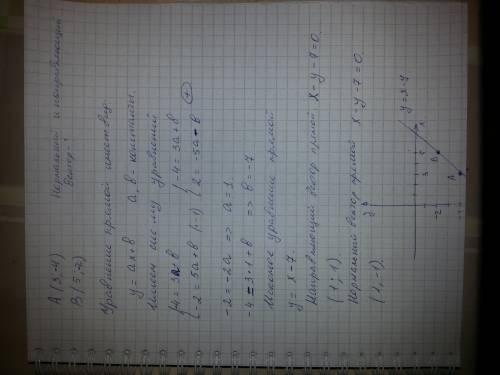 A(3,-4) Нормальный и направляющий
B(5,-2) Вектор-?
Уравнение прямой имеет вид
y = ax+b a, b - константы.
Имеем систему уравнений
{-4 = 3a+b {-4 = 3a+b
{-2 = 5a+b |(-1) {2 = -5a-b (+)
-2 = -2a => a = 1.
-4 = 3·1+b => b = -7.
Искомое уравнение прямой
y = x-7.
Направляющий вектор прямой x-y-7=0
(1,-1).
Нормальный вектор прямой x-y-7=0.
(1,-1).
y = x-7
y
x
B
A